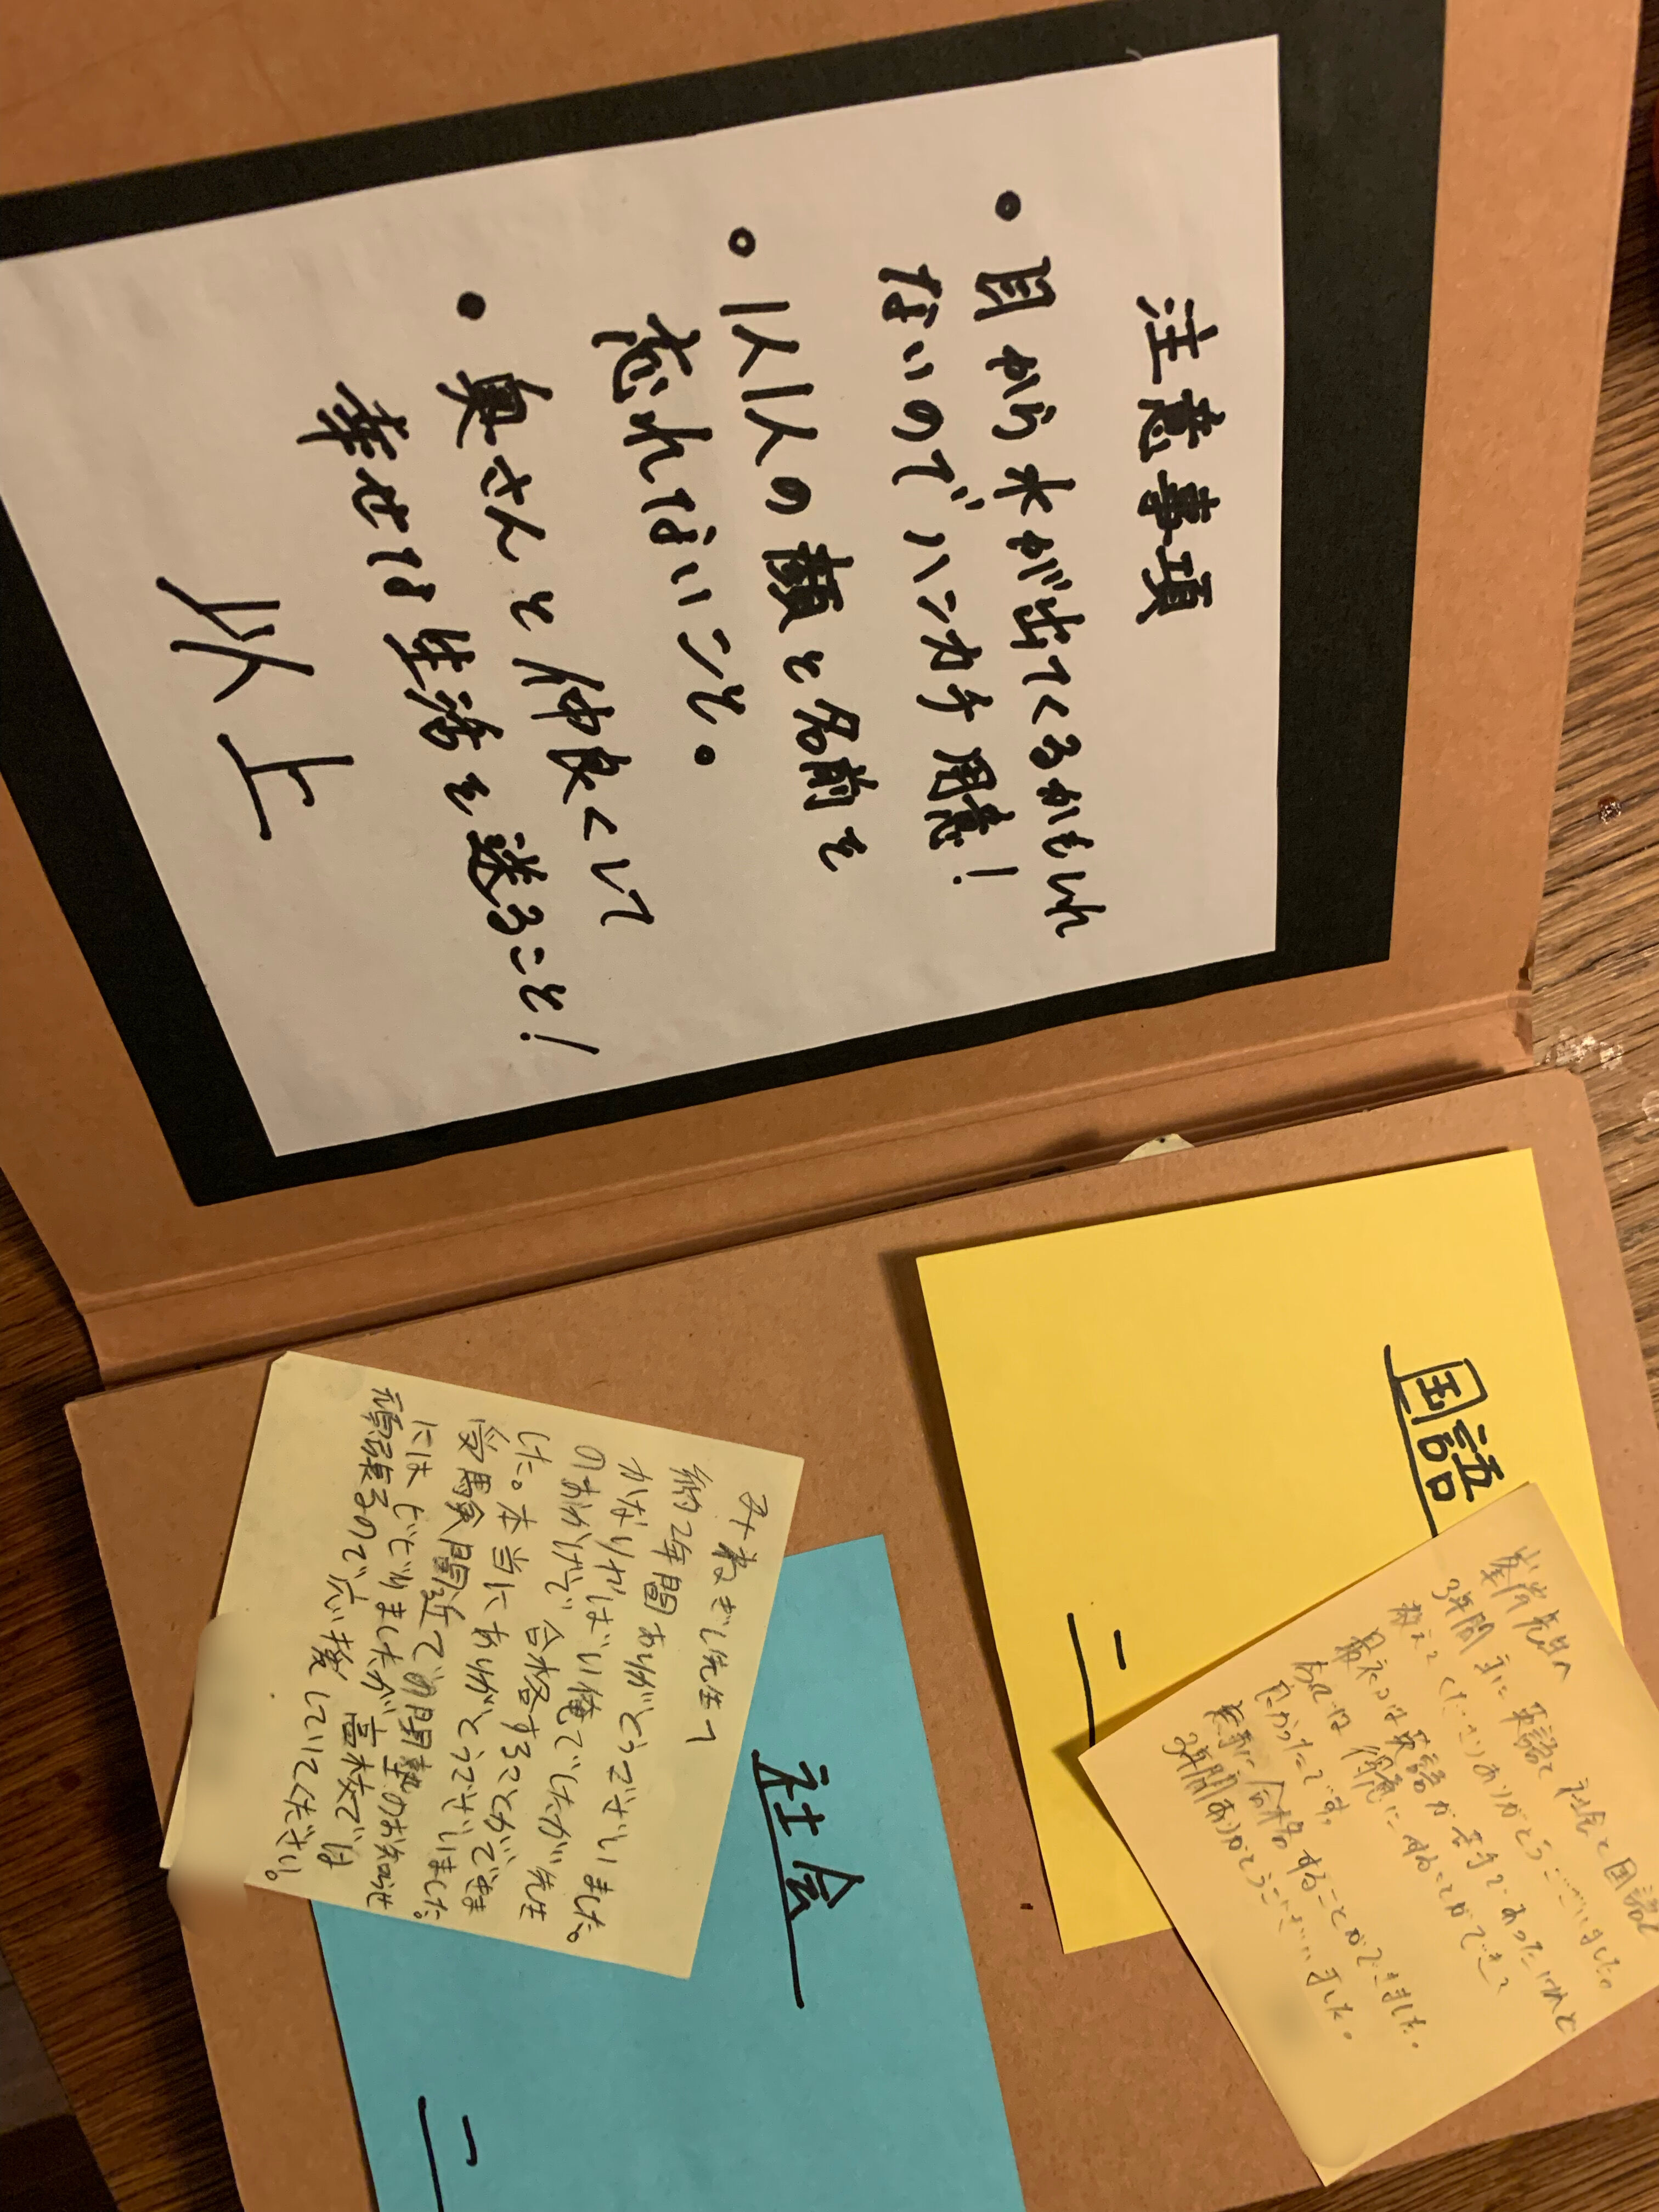 注意事項
• 目から水が出てくるかもしれ
ないのでハンカチ用意！
• 1人1人の顔と名前を
忘れないこと。
• 奥さんと仲良くして
幸せな生活を送ること！
以上
国語
一
先生へ
3年間 主に英語と社会と国語を
教えてくださりありがとうございました。
最初は英語が苦手であったけれど
得意にすることができて
よかったです。
無事に合格することができました。
3年間ありがとうございました。
社会
一
みねぎし先生へ
約2年間ありがとうございました。
かなりやばい俺でしたが先生
のおかげで合格することができま
した。本当にありがとうございました。
受験間近での閉塾のお知らせ
にはビビりましたが高校では
頑張るので応援していてください。